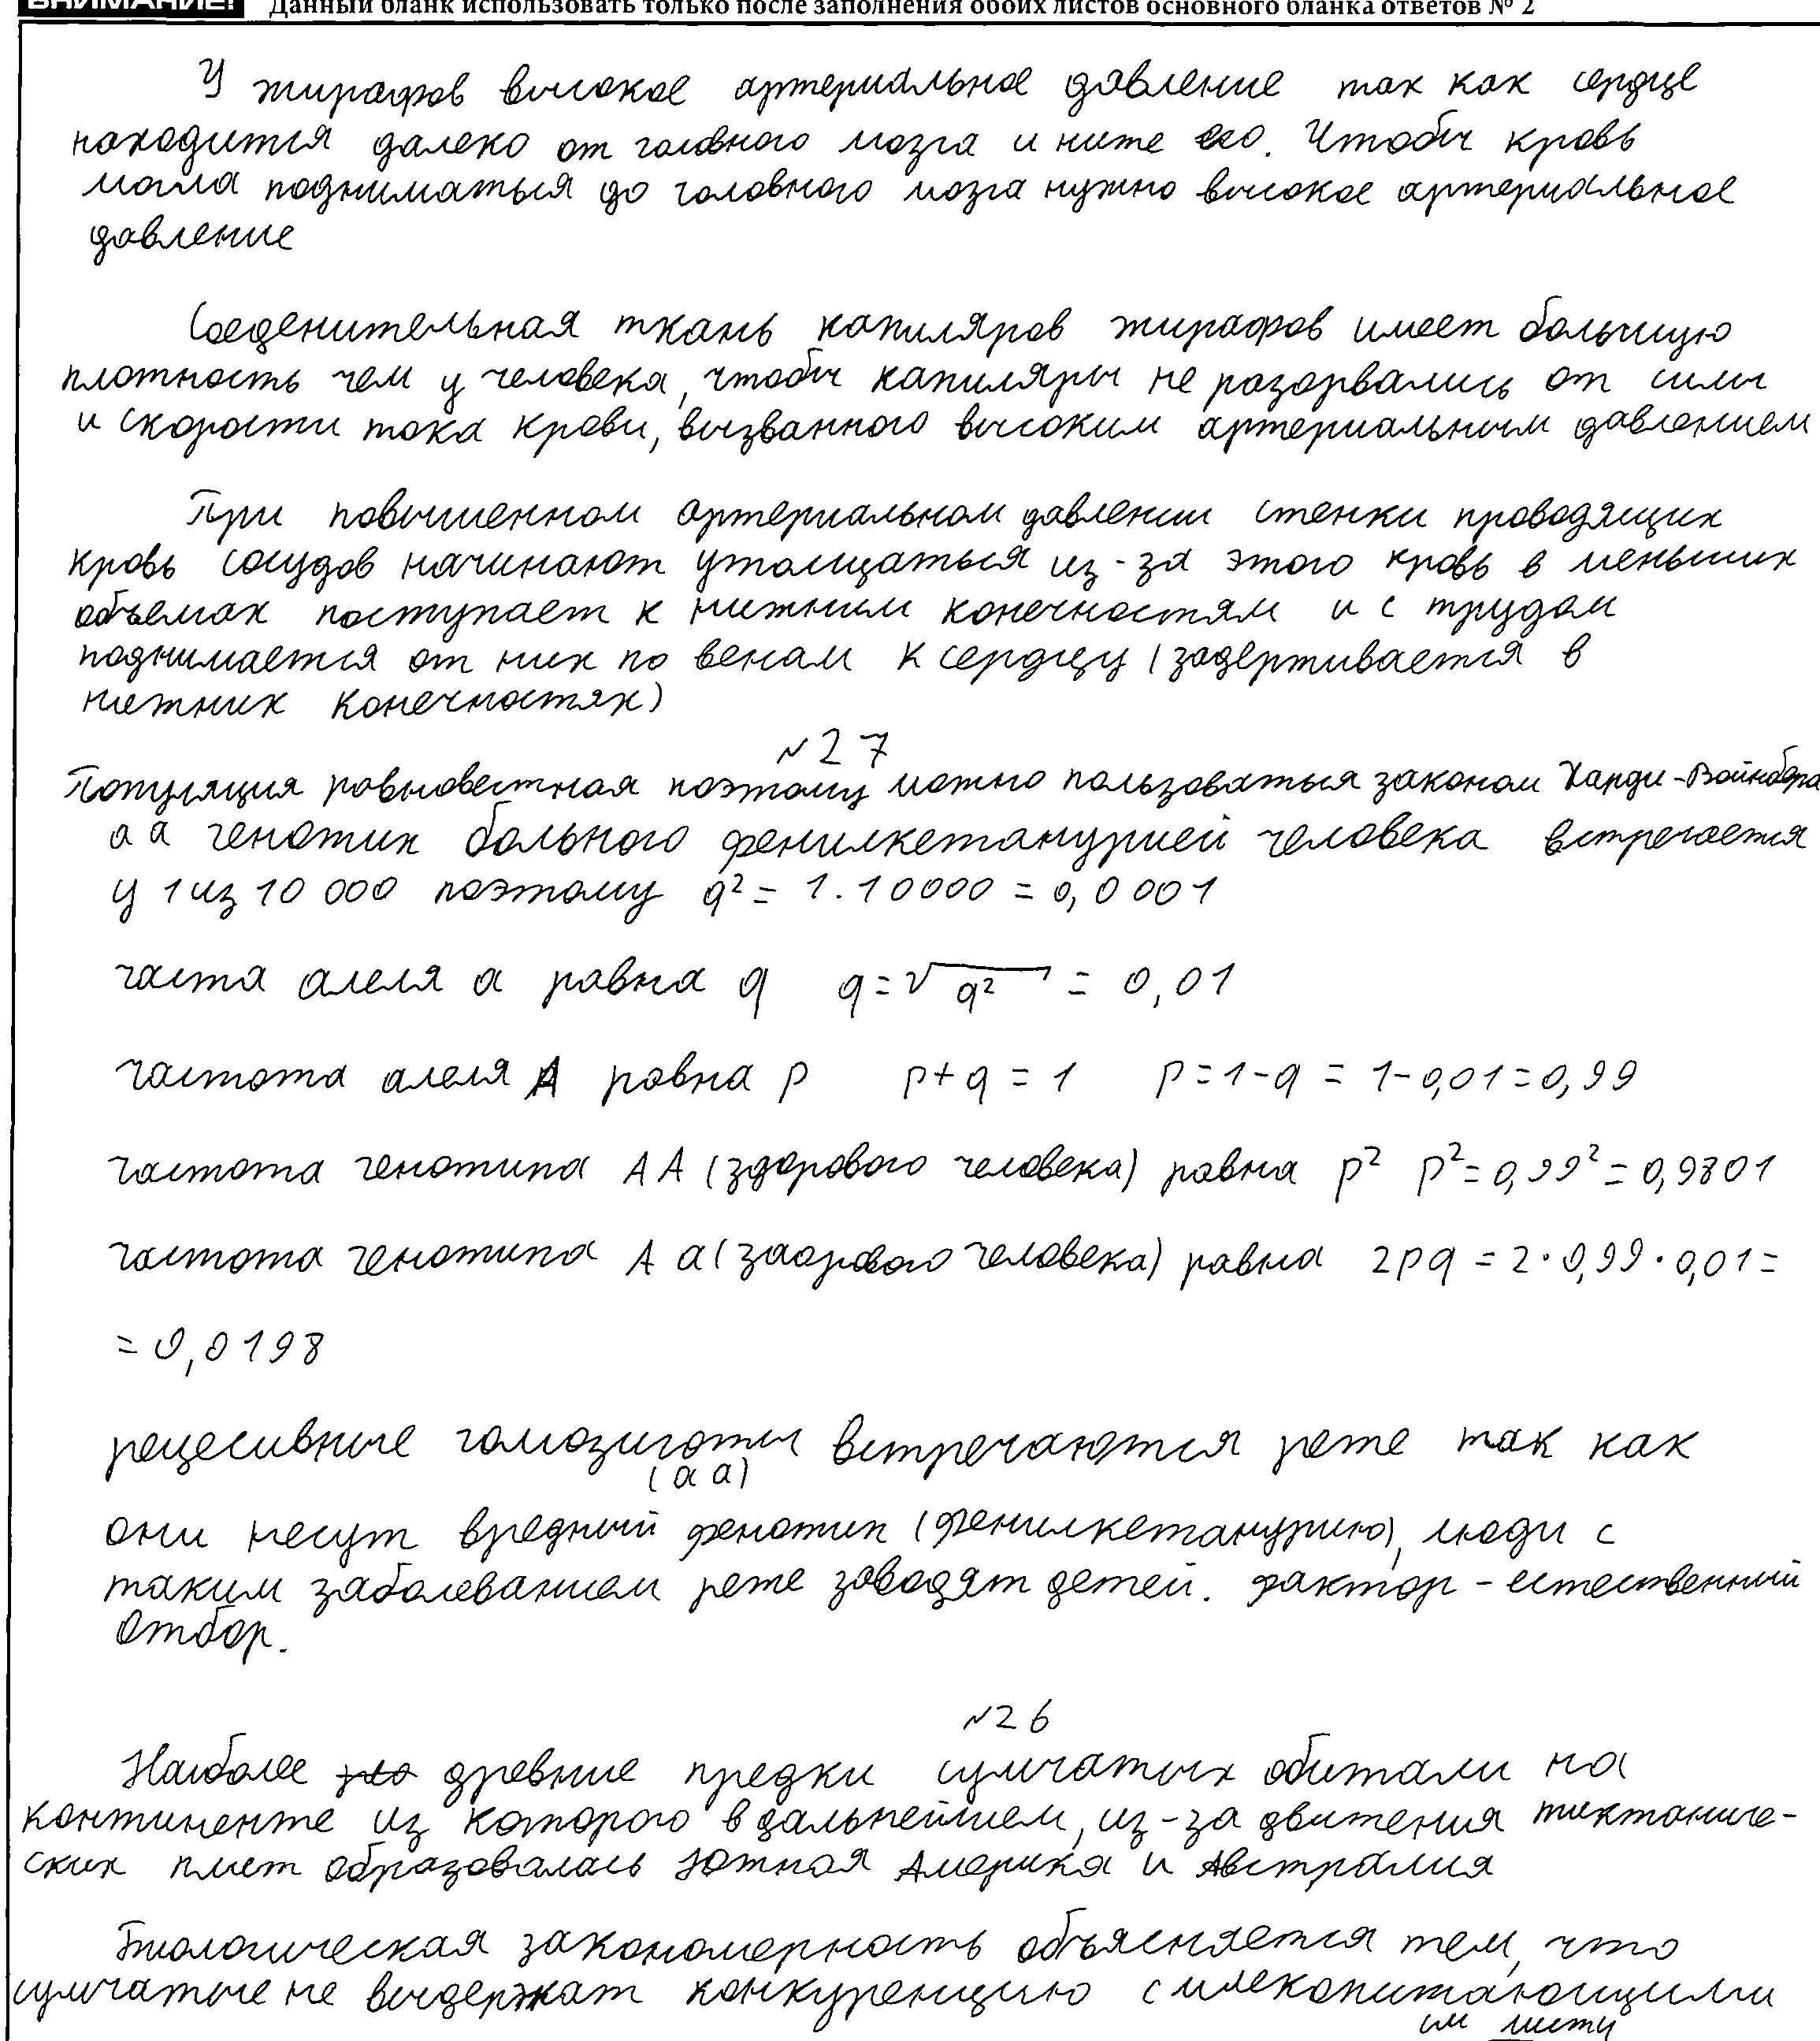 ВНИМАНИЕ! Данный бланк использовать только после заполнения обоих листов основного бланка ответов № 2
У жирафов высокое артериальное давление так как сердце
находится далеко от головного мозга и ниже его. Чтобы кровь
могла подниматься до головного мозга нужно высокое артериальное
давление
Соеденительная ткань капиляров жирафов имеет большую
плотность чем у человека, чтобы капиляры не разорвались от силы
и скорости тока крови, вызванного высоким артериальным давлением
При повышенном артериальном давлении стенки проводящих
кровь сосудов начинают утолщаться из-за этого кровь в меньших
объемах поступает к нижним конечностям и с трудом
поднимается от них по венам к сердцу (задерживается в
нижних конечностях)
№27
Популяция равновестная поэтому можно пользоваться законом Харди-Вайнберга
aa генотип больного фенилкетанурией человека встречается
у 1 из 10 000 поэтому q² = 1.10000 = 0,0001
часта алеля a равна q q = √q² = 0,01
частота алеля A равна p p+q = 1 p=1-q = 1-0,01=0,99
частота генотипа AA (здорового человека) равна p² p²=0,99²=0,9801
частота генотипа Aa (здорового человека) равна 2pq = 2·0,99·0,01=
= 0,0198
рецесивные гомозиготы встречаются реже так как
(aa)
они несут вредный фенотип (фенилкетанурию), люди с
таким заболеванием реже заводят детей. Фактор - естественный
отбор.
№26
Наиболее древние предки сумчатых обитали на
континенте из которого в дальнейшем, из-за движения тиктаниче-
ских плит образовалась Южная Америка и Австралия
Биологическая закономерность объясняется тем, что
сумчатые не выдержат конкуренцию с млекопитающими
см листу